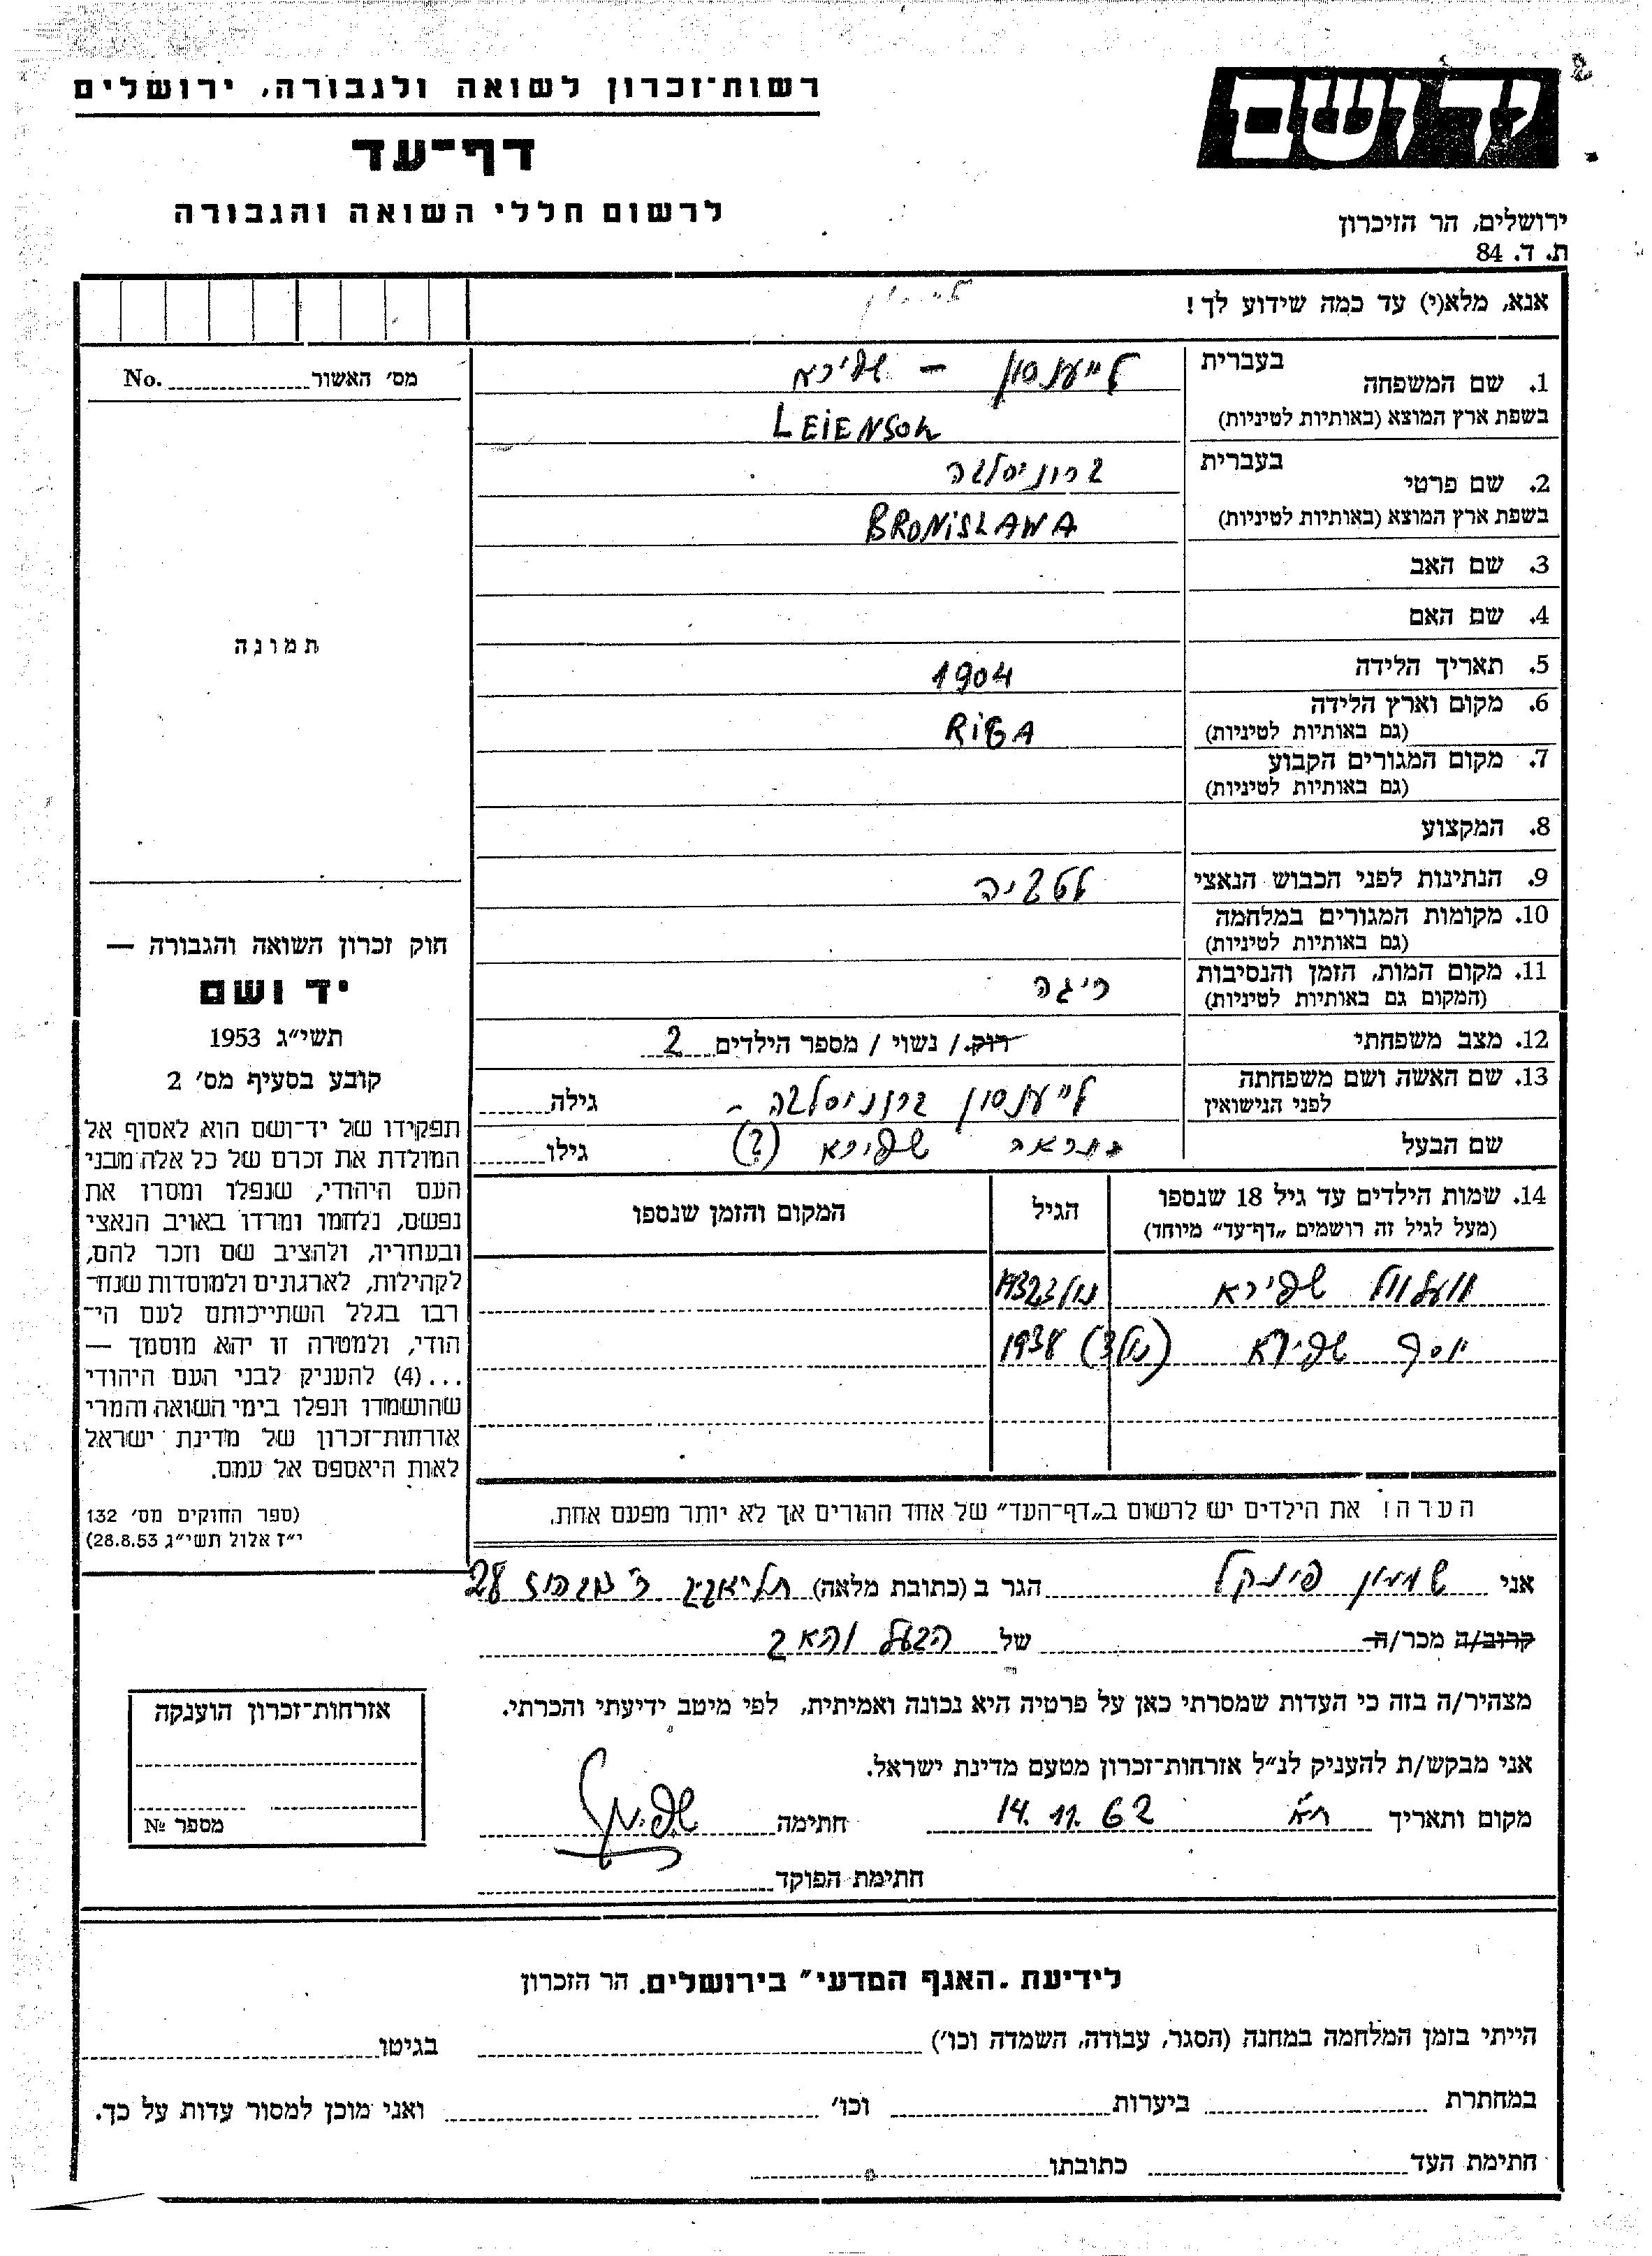 יד ושם
רשות־זכרון לשואה ולגבורה, ירושלים
דף־עד
לרשום חללי השואה והגבורה
ירושלים, הר הזיכרון
ת. ד. 84
אנא, מלא(י) עד כמה שידוע לך!
בעברית
1. שם המשפחה לייענסון – שפירא
בשפת ארץ המוצא (באותיות לטיניות) LEIENSON
בעברית
2. שם פרטי ברוניסלבה
בשפת ארץ המוצא (באותיות לטיניות) BRONISLAWA
3. שם האב
4. שם האם
5. תאריך הלידה 1904
6. מקום וארץ הלידה RIGA
(גם באותיות לטיניות)
7. מקום המגורים הקבוע
(גם באותיות לטיניות)
8. המקצוע
9. הנתינות לפני הכבוש הנאצי לטביה
10. מקומות המגורים במלחמה
(גם באותיות לטיניות)
11. מקום המות, הזמן והנסיבות ריגה
(המקום גם באותיות לטיניות)
12. מצב משפחתי רוק / נשוי / מספר הילדים 2
13. שם האשה ושם משפחתה לייענסון ברוניסלבה – גילה
לפני הנישואין
שם הבעל שפירא (?) גילו
14. שמות הילדים עד גיל 18 שנספו הגיל המקום והזמן שנספו
(מעל לגיל זה רושמים „דף־עד" מיוחד)
וועלוול שפירא נולד 1932
יוסף שפירא (נולד) 1938
הערה! את הילדים יש לרשום ב„דף־העד" של אחד ההורים אך לא יותר מפעם אחת.
מס׳ האשור No.
תמונה
חוק זכרון השואה והגבורה —
יד ושם
תשי״ג 1953
קובע בסעיף מס׳ 2
תפקידו של יד־ושם הוא לאסוף אל
המולדת את זכרם של כל אלה מבני
העם היהודי, שנפלו ומסרו את
נפשם, נלחמו ומרדו באויב הנאצי
ובעוזריו, ולהציב שם וזכר להם,
לקהילות, לארגונים ולמוסדות שנח־
רבו בגלל השתייכותם לעם הי־
הודי, ולמטרה זו יהא מוסמך —
...(4) להעניק לבני העם היהודי
שהושמדו ונפלו בימי השואה והמרי
אזרחות־זכרון של מדינת ישראל
לאות היאספם אל עמם.
(ספר החוקים מס׳ 132
י״ז אלול תשי״ג 28.8.53)
אני שמעון פינקל הגר ב (כתובת מלאה) תל־אביב 28
קרוב/ה מכר/ה של הבעל והאב
מצהיר/ה בזה כי העדות שמסרתי כאן על פרטיה היא נכונה ואמיתית, לפי מיטב ידיעתי והכרתי.
אני מבקש/ת להעניק לנ״ל אזרחות־זכרון מטעם מדינת ישראל.
מקום ותאריך ת״א 14.11.62 חתימה
חתימת הפוקד
אזרחות־זכרון הוענקה
מספר №
לידיעת „האגף המדעי" בירושלים. הר הזכרון
הייתי בזמן המלחמה במחנה (הסגר, עבודה, השמדה וכו׳) בגיטו
במחתרת ביערות וכו׳ ואני מוכן למסור עדות על כך.
חתימת העד כתובתו